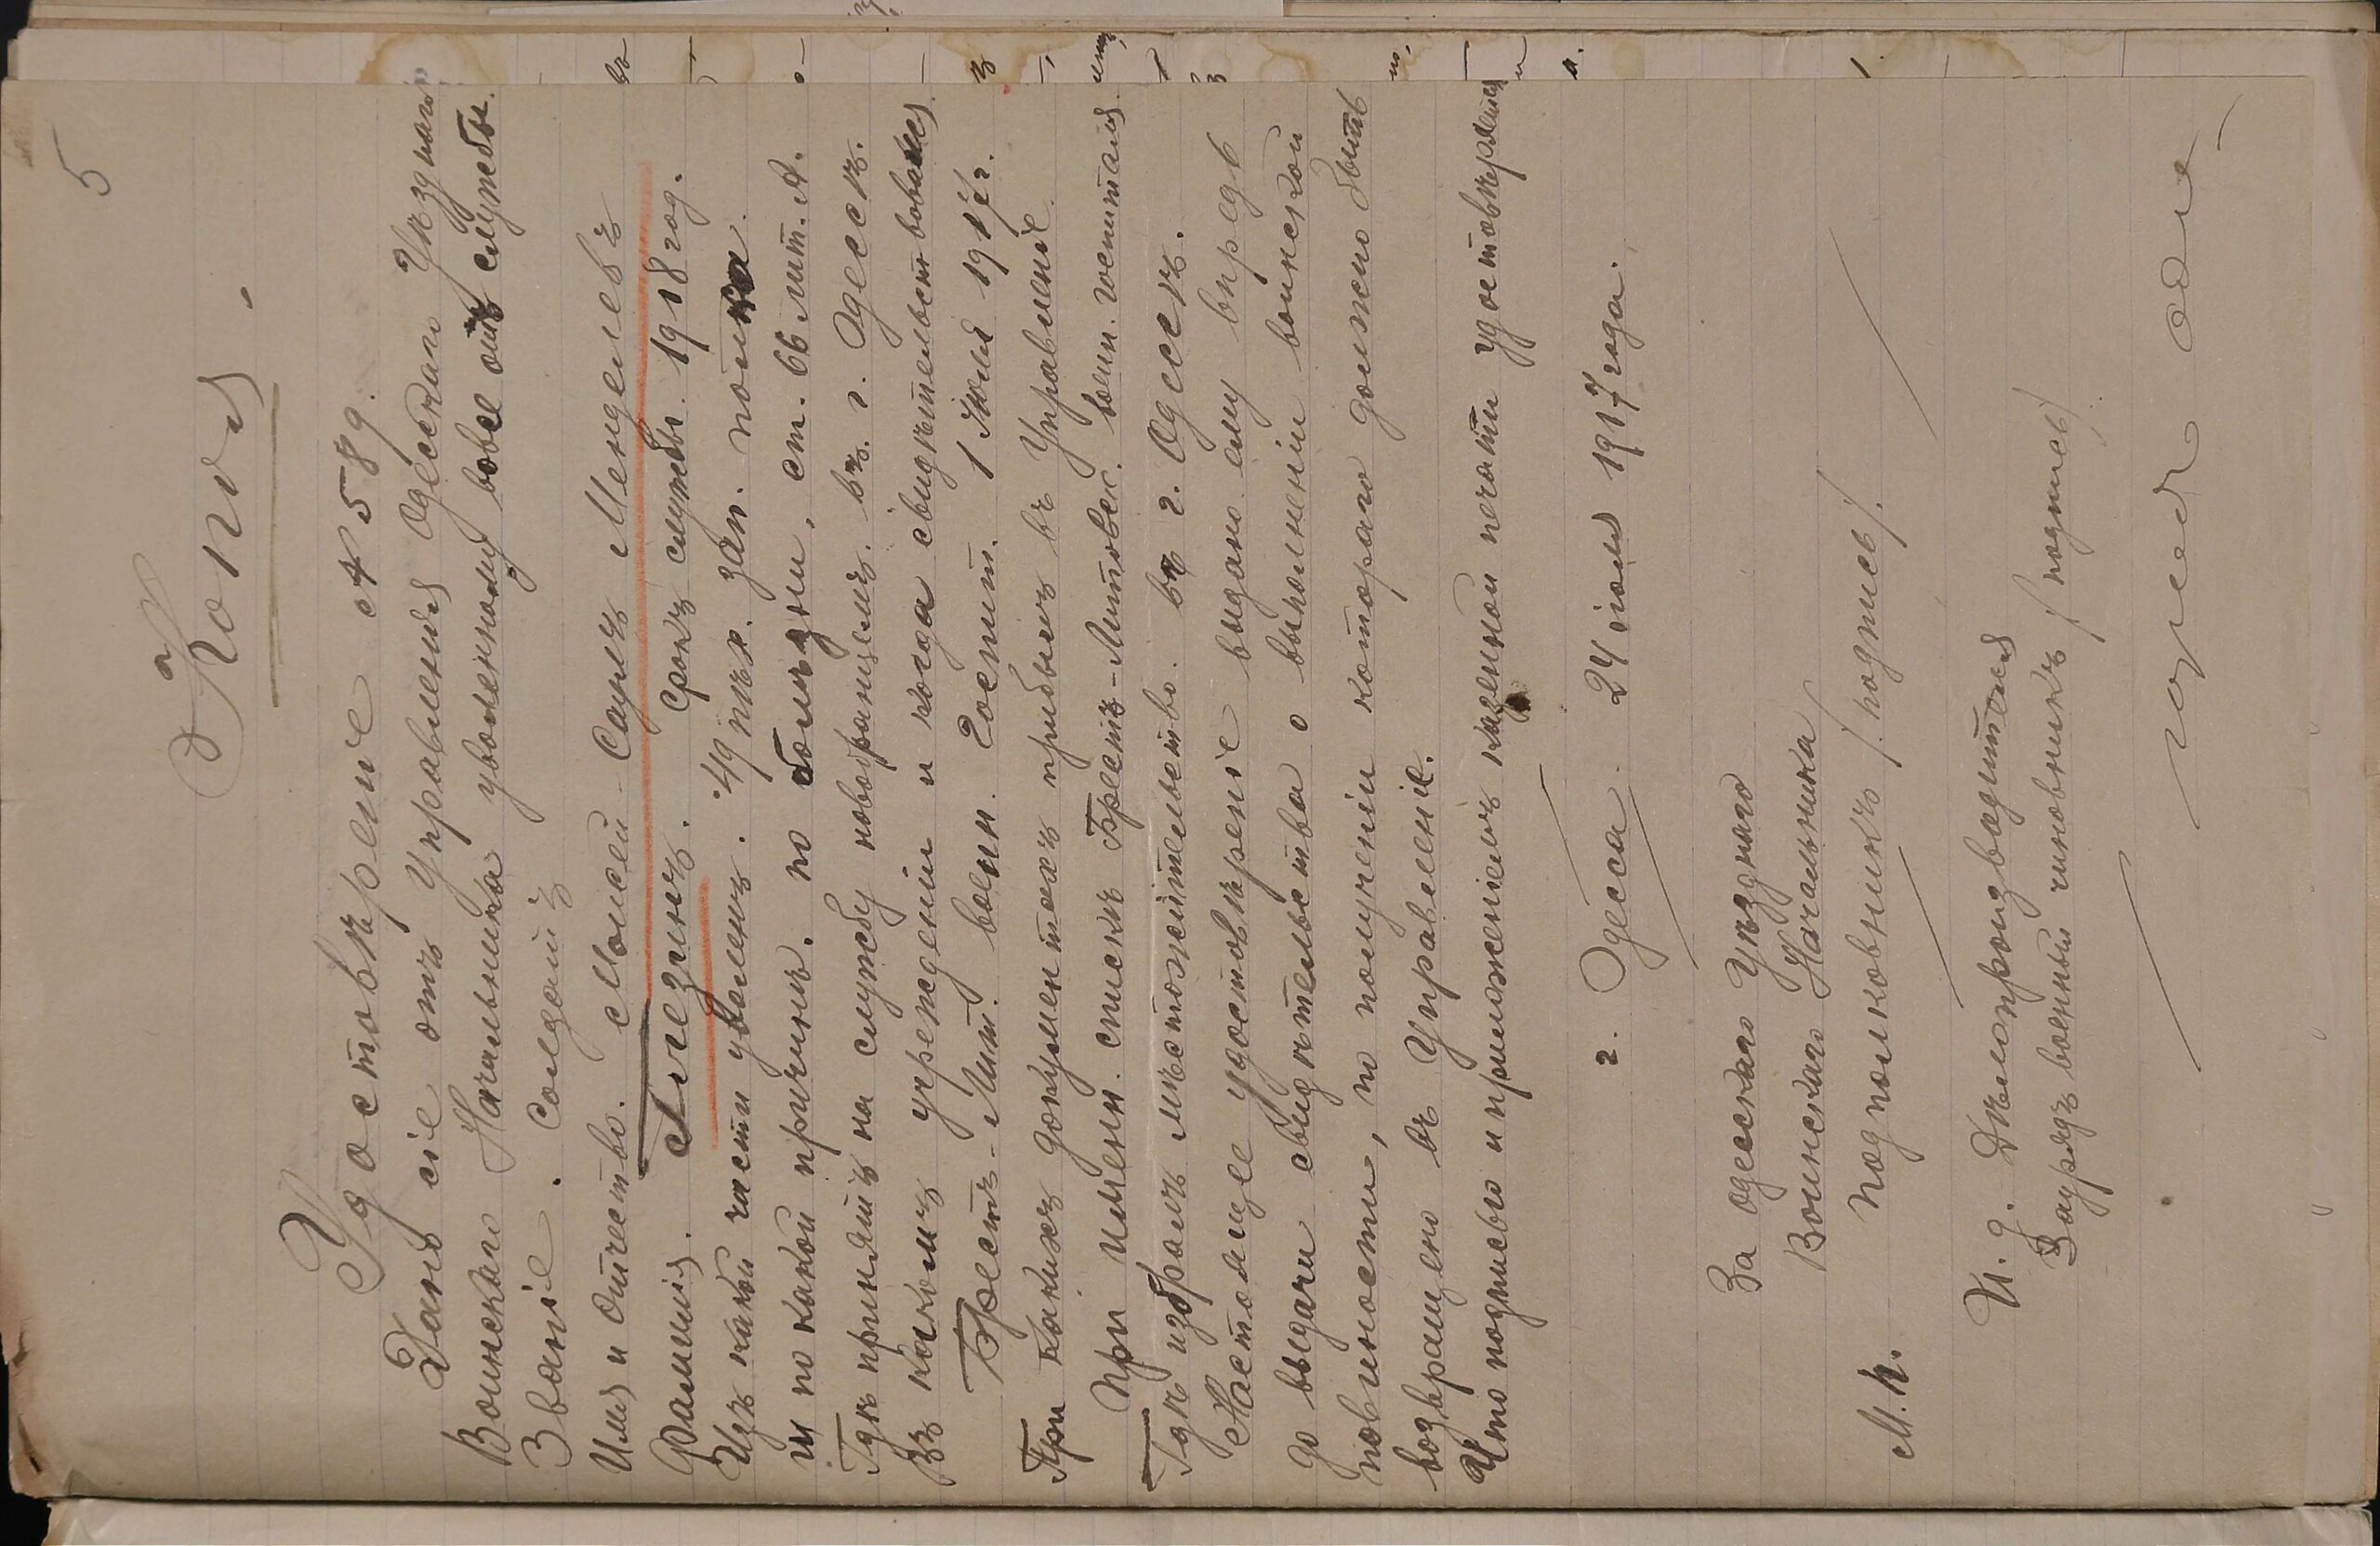 5
Копія.
Удостовѣреніе № 589.
Дано сіе отъ Управленія Одесскаго Уѣзднаго
Воинскаго Начальника уволенному вовсе отъ службы.
Званіе. Солдатъ
Имя и отчество. Моисей-Сауль Менделевъ
Фамилія. Лигезинъ. Срокъ службы. 1918 год.
Изъ какой части уволенъ. 49 пѣх. зап. полка.
и по какой причинѣ. по болѣзни, ст. 66 лит. А.
Гдѣ принятъ на службу новобранцемъ. въ г. Одессѣ.
Въ какомъ учрежденіи и когда свидѣтельствовался
Брестъ-Лит. воен. Госпит. 1 Июля 1917 г.
При какихъ документахъ прибылъ въ Управленіе.
При именн. спискѣ Брестъ-Литовск. воен. госпиталя.
Гдѣ избралъ мѣстожительство. въ г. Одессѣ.
Настоящее удостовѣреніе выдано ему впредь
до выдачи свидѣтельства о выполненіи воинской
повинности, по полученіи котораго должно быть
возвращено въ Управленіе.
Что подписью и приложеніемъ казенной печати удостовѣряется
г. Одесса. 24 іюля 1917 года.
За Одесскаго Уѣзднаго
Воинскаго Начальника
М.П. Подполковникъ /подпись/.
И. д. Дѣлопроизводителя
Заурядъ военный чиновникъ /подпись/